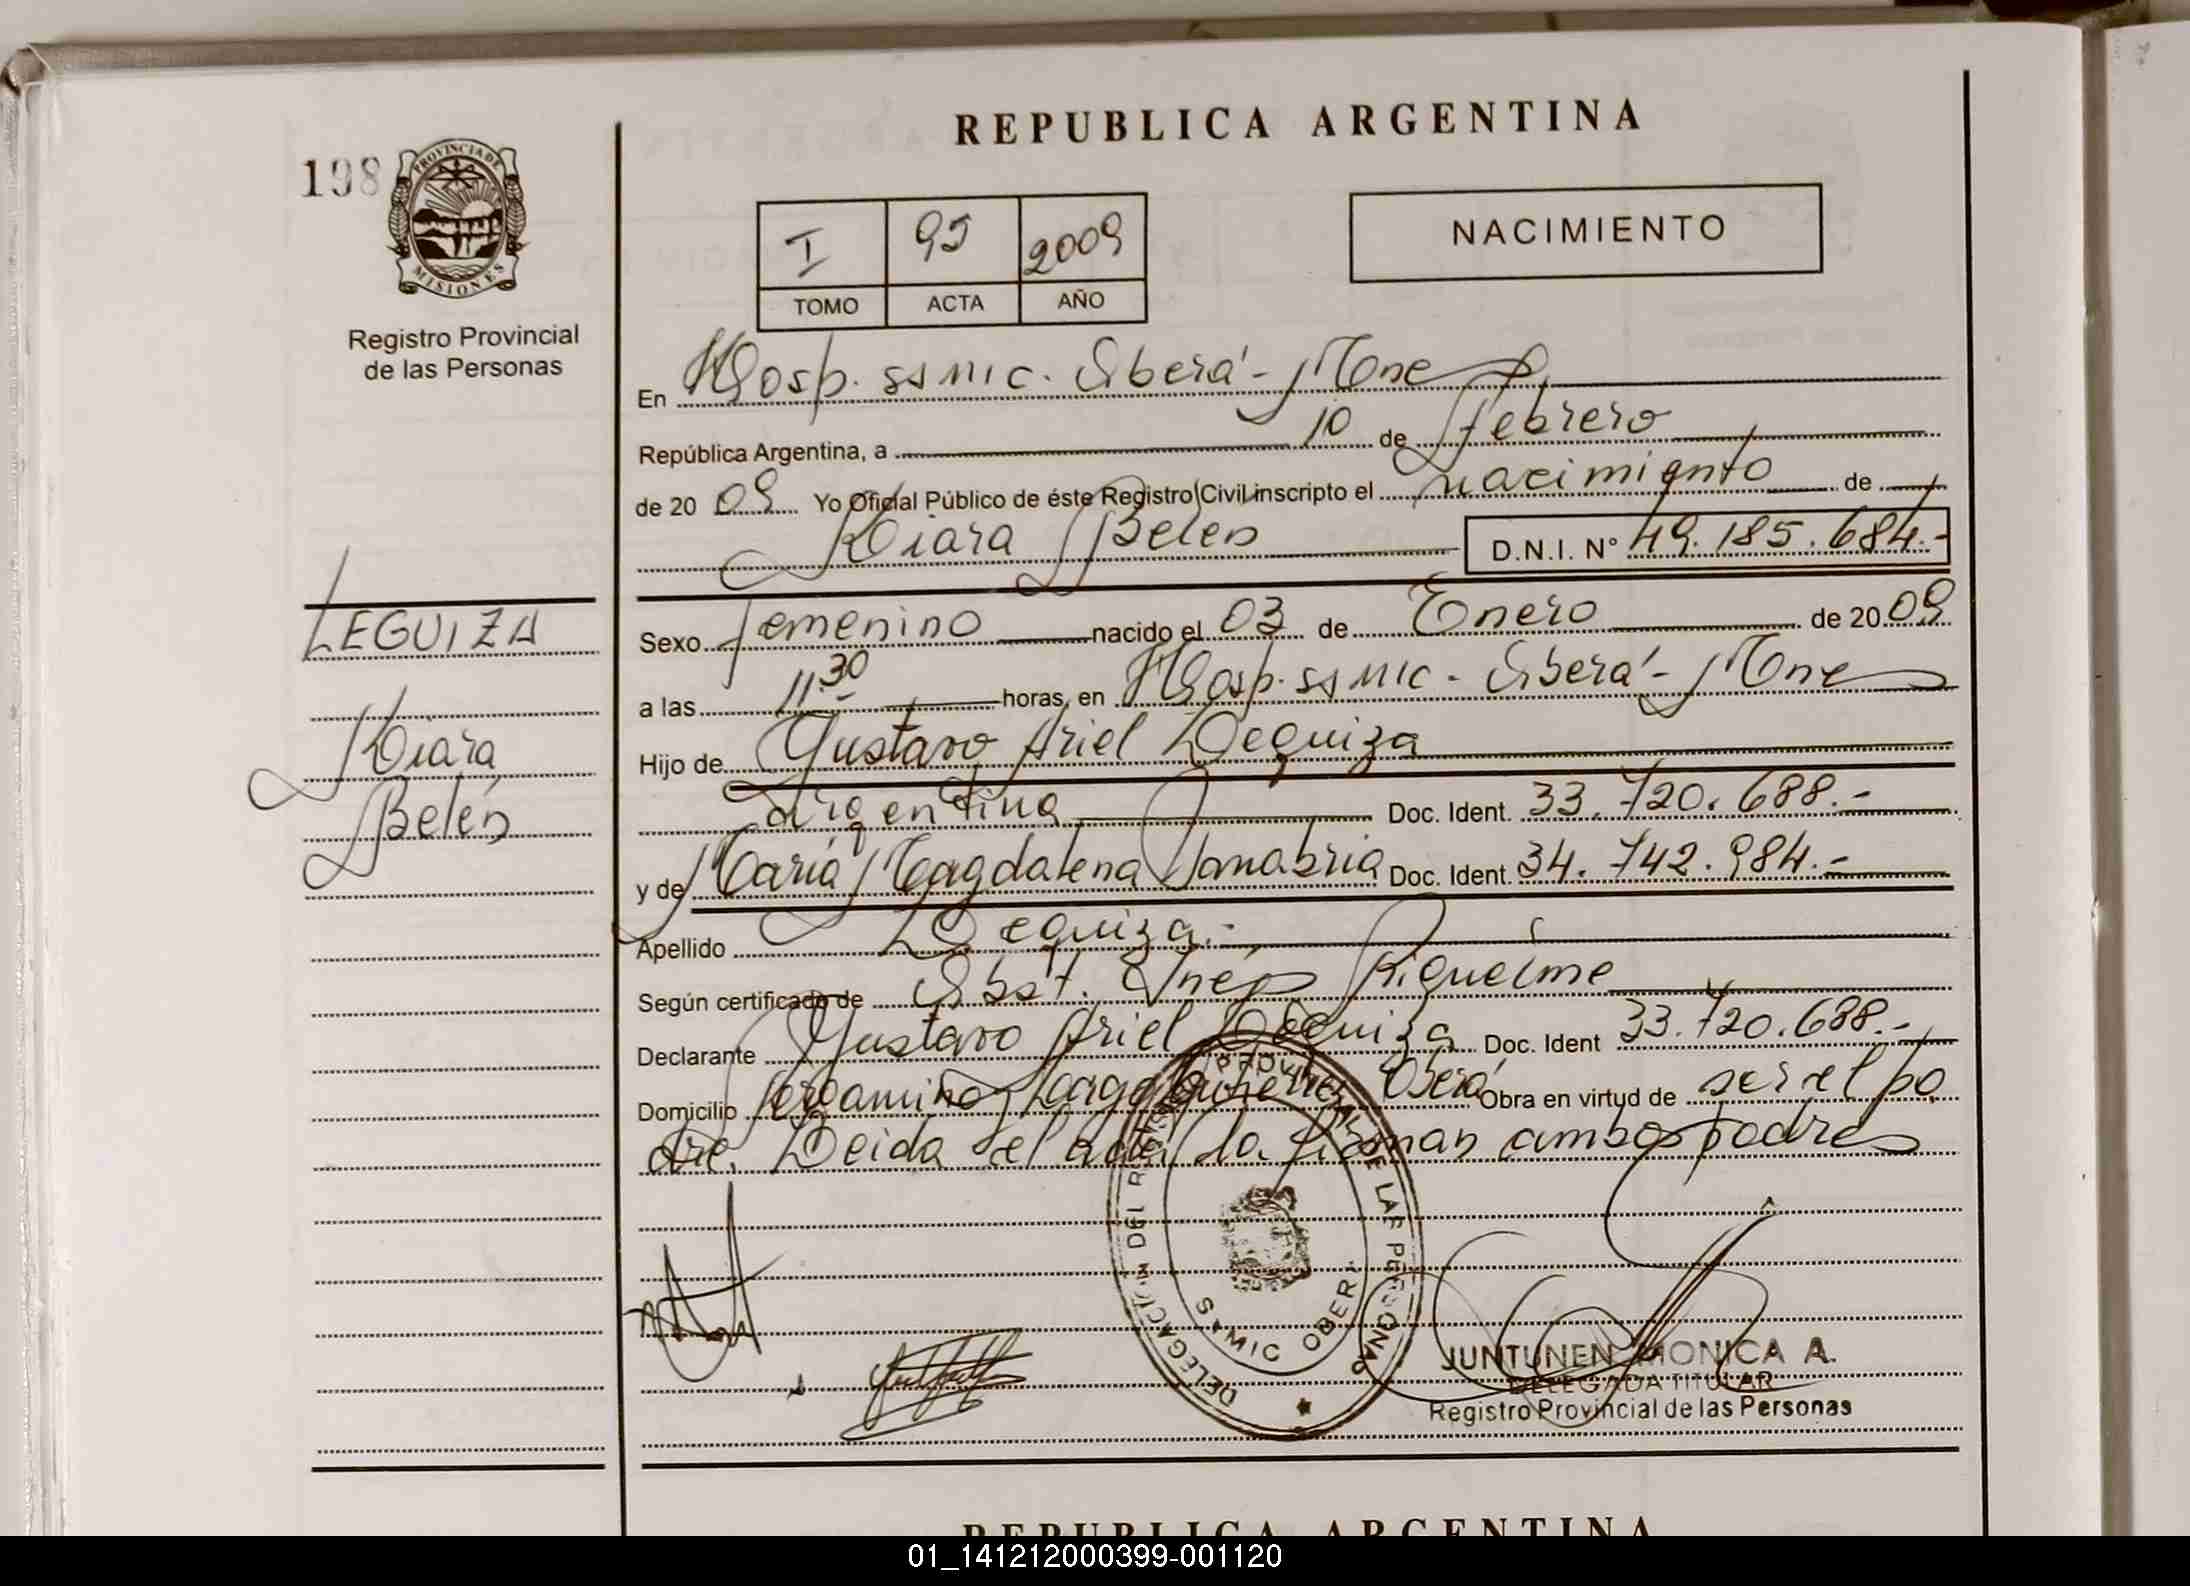 REPUBLICA ARGENTINA
198
PROVINCIA DE
MISIONES
Registro Provincial
de las Personas
I 95 2009
TOMO ACTA AÑO
NACIMIENTO
En Hosp. SSMIC. Oberá - Mnes
República Argentina, a 10 de febrero
de 20 09 Yo Oficial Público de éste Registro Civil inscripto el nacimiento de
Kiara Belén D.N.I. Nº 49.185.684.-
LEGUIZA
Kiara
Belén
Sexo femenino nacido el 03 de Enero de 20 09
a las 11.30 horas, en Hosp. SSMIC - Oberá - Mnes
Hijo de Gustavo Ariel Leguiza
argentina Doc. Ident. 33.720.688.-
y de María Magdalena Sanabria Doc. Ident. 34.742.984.-
Apellido Leguiza.-
Según certificado de Obst. Inés Riquelme
Declarante Gustavo Ariel Leguiza Doc. Ident 33.720.688.-
Domicilio Pergamino Oberá Obra en virtud de ser el pa
dre. Leída el acta la firman ambos padres
DELEGACION DEL REGISTRO PROVINCIAL DE LAS PERSONAS
SAMIC OBERA
JUNTUNEN MONICA A.
DELEGADA TITULAR
Registro Provincial de las Personas
REPUBLICA ARGENTINA
01_141212000399-001120